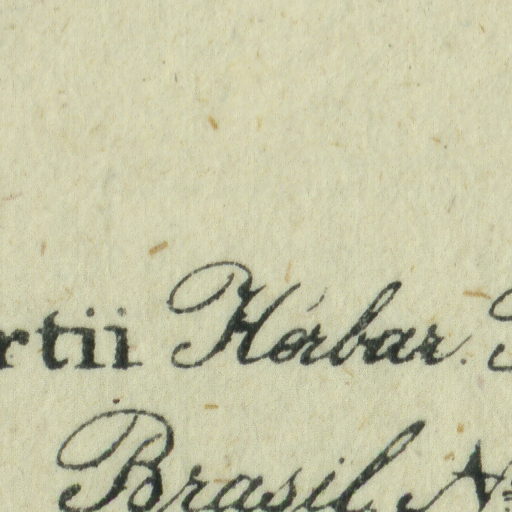 rtii Herbar.
Brasil. N